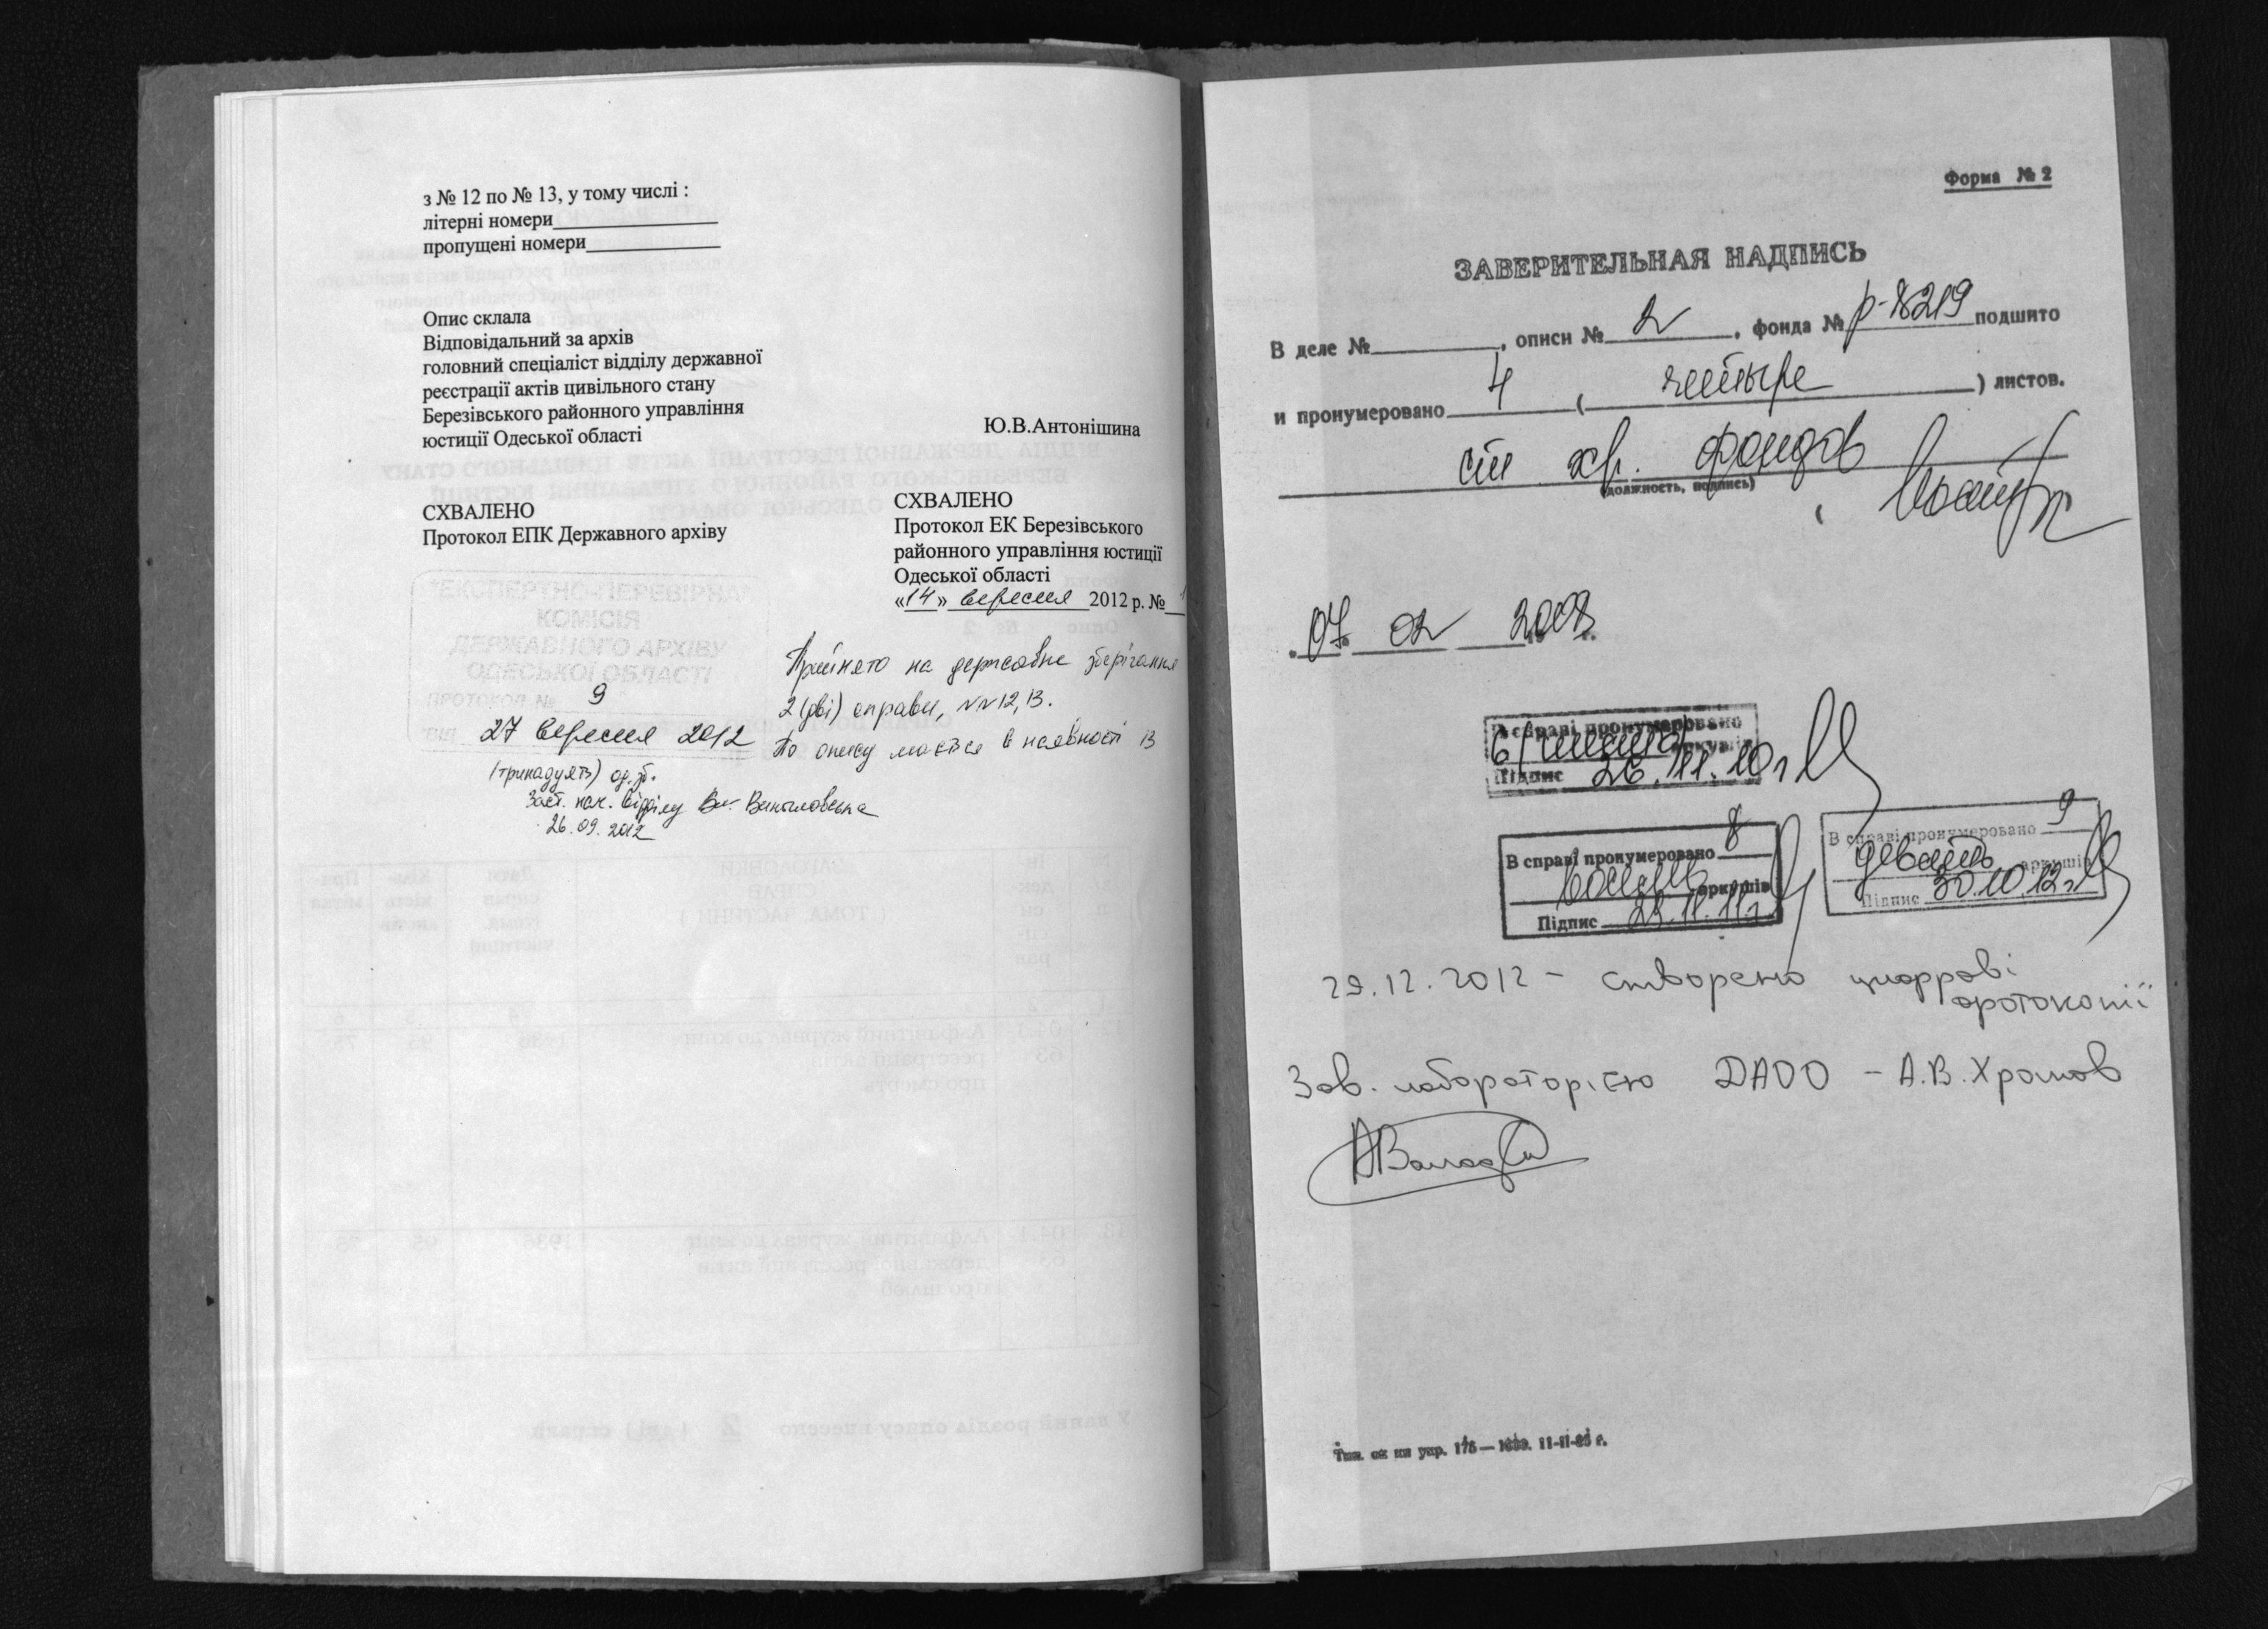 з № 12 по № 13, у тому числі :
літерні номери
пропущені номери
Опис склала
Відповідальний за архів
головний спеціаліст відділу державної
реєстрації актів цивільного стану
Березівського районного управління
юстиції Одеської області
Ю.В.Антонішина
СХВАЛЕНО
Протокол ЕПК Державного архіву
"ЕКСПЕРТНО-ПЕРЕВІРНА
КОМІСІЯ
ДЕРЖАВНОГО АРХІВУ
ОДЕСЬКОЇ ОБЛАСТІ
ПРОТОКОЛ № 9
ВІД 27 вересня 2012
СХВАЛЕНО
Протокол ЕК Березівського
районного управління юстиції
Одеської області
«14» вересня 2012 р. № 1
Прийнято на державне зберігання
2 (дві) справи, №№ 12, 13.
По опису мається в наявності 13
(тринадцять) од. зб.
Заст. нач. відділу
26.09.2012
Форма № 2
ЗАВЕРИТЕЛЬНАЯ НАДПИСЬ
В деле № , описи № 2 , фонда № р-8219 подшито
и пронумеровано 4 ( четыре ) листов.
ст хр. фондов
(должность, подпись)
07 02 2003
В справі пронумеровано
6 (шість) аркушів
Підпис 26.11.10 г
В справі пронумеровано 8
восемь аркушів
Підпис 29.11.11 г.
В справі пронумеровано 9
девять аркушів
Підпис 30.10.12 г
29.12.2012 - створено цифрові
фотокопії
Зав. лабораторією ДАОО - А.В.Хромов